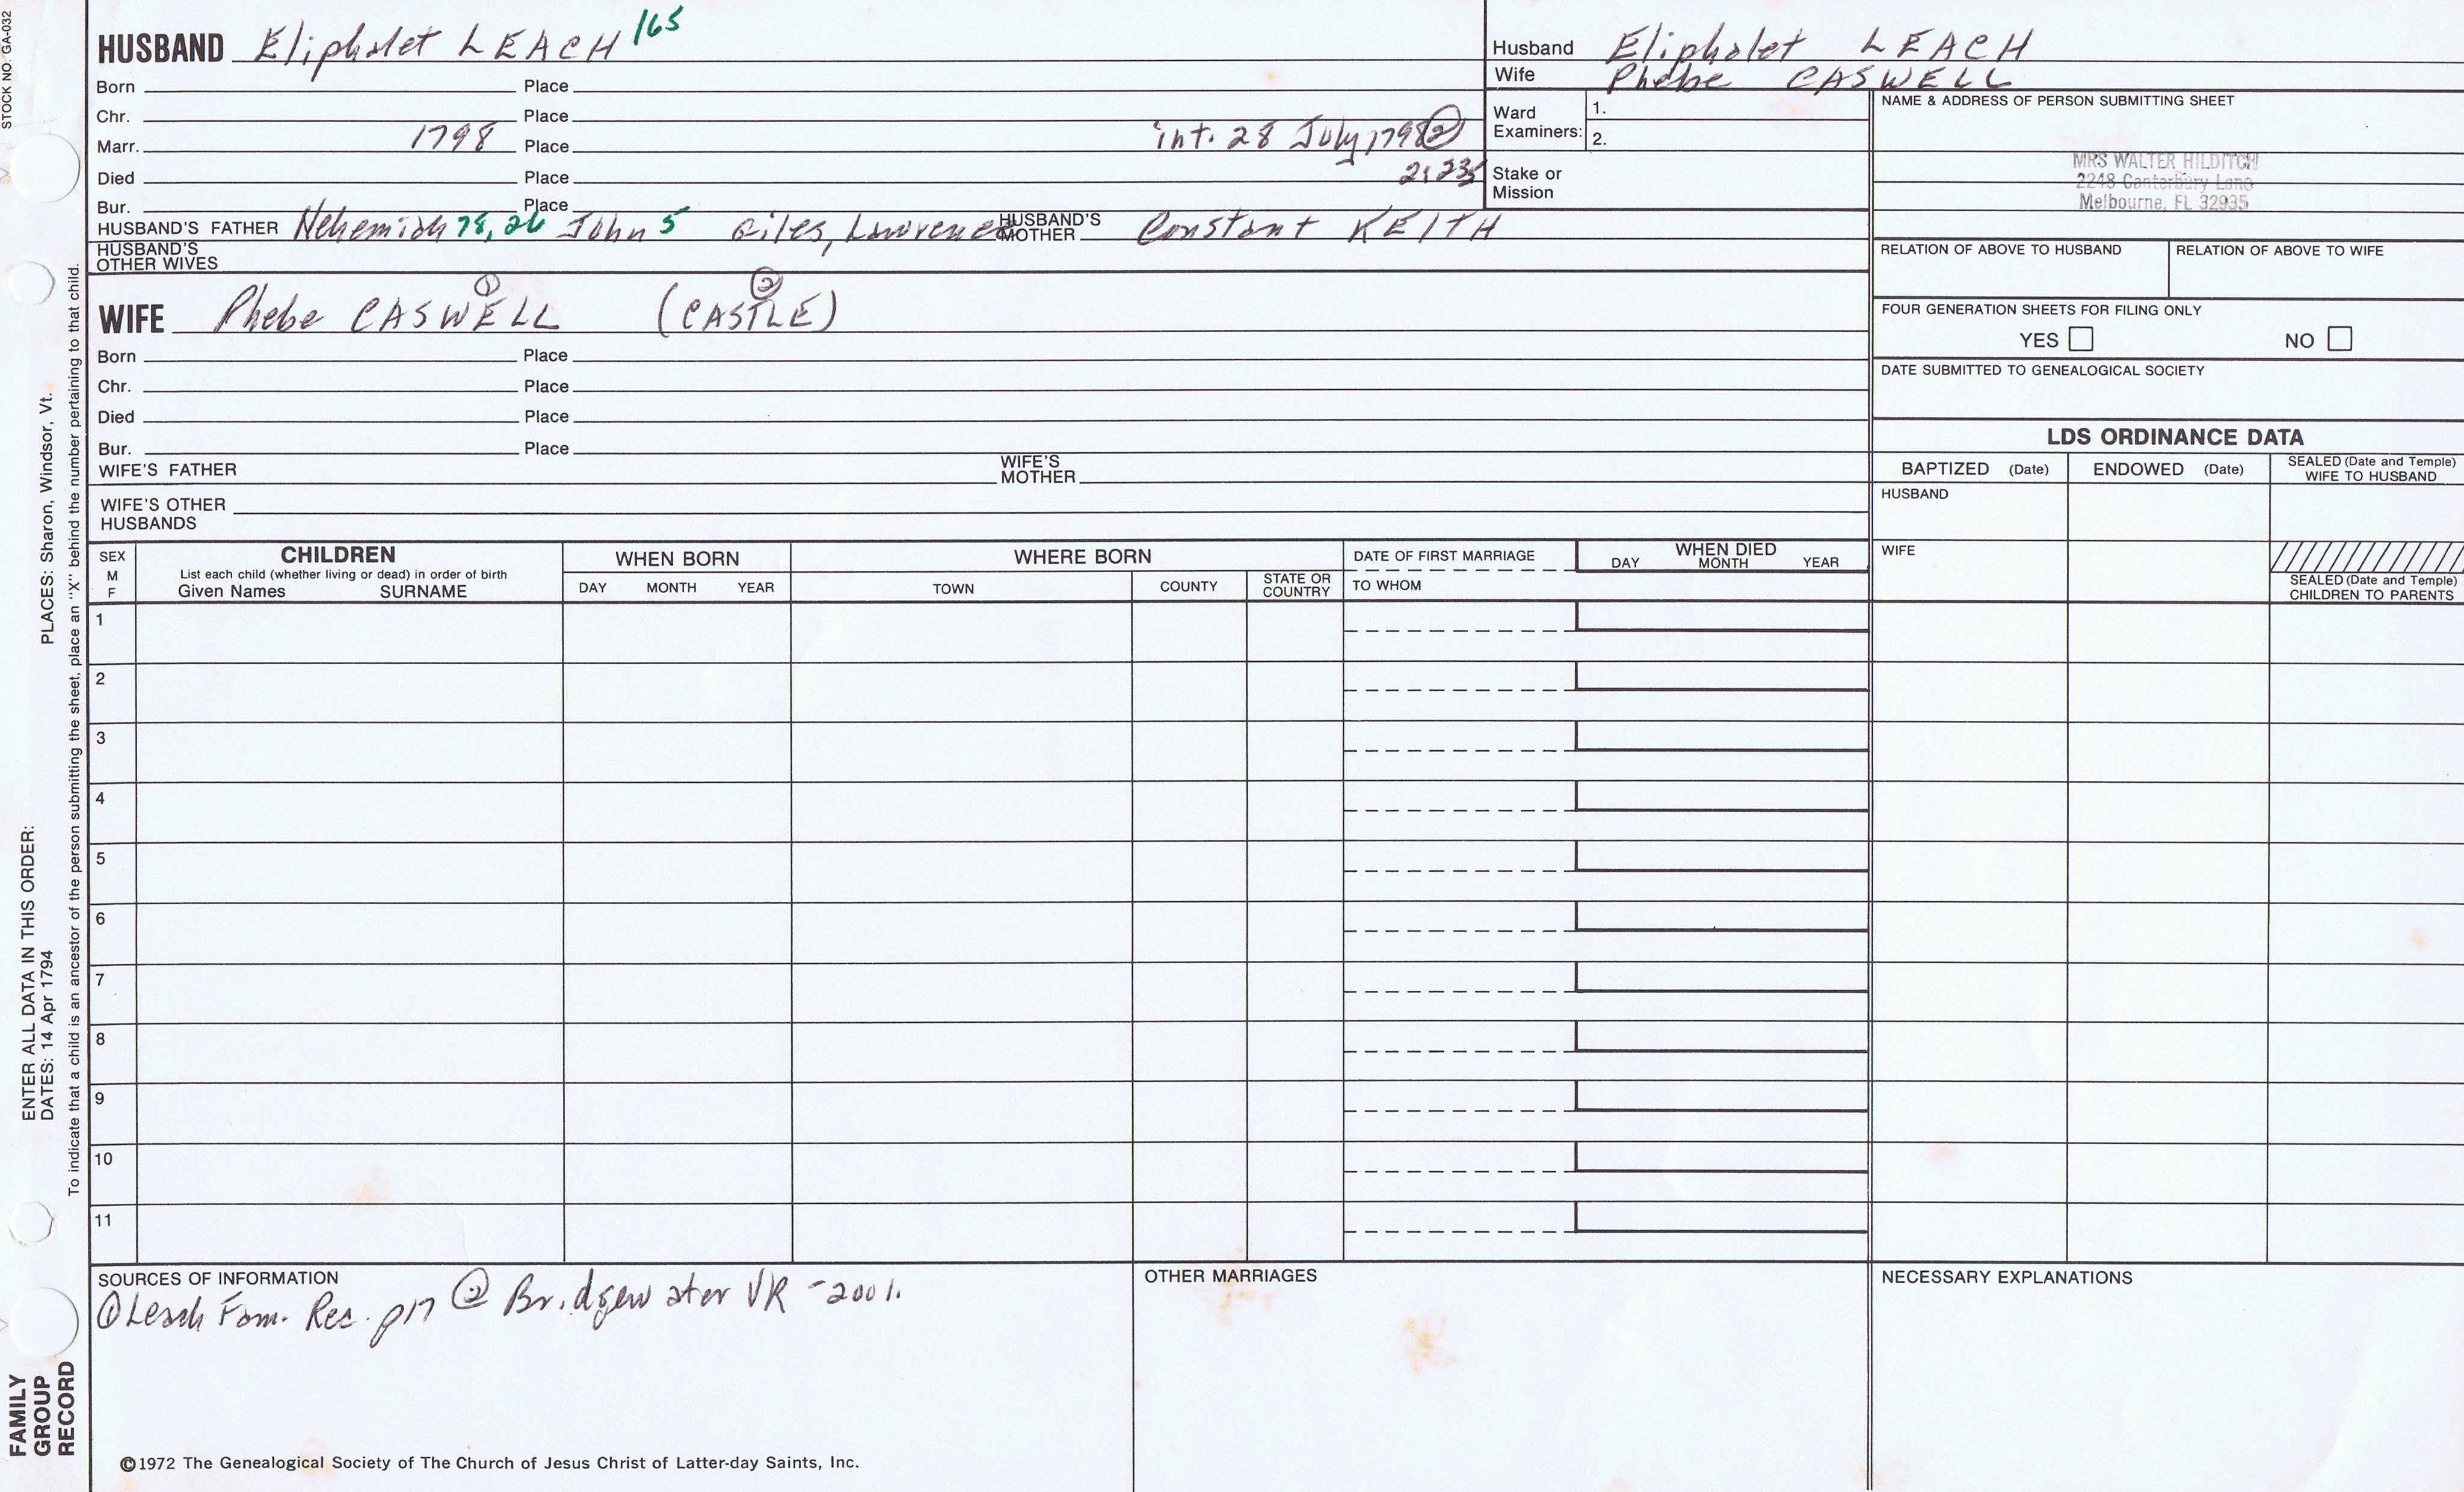 STOCK NO. GA-032
HUSBAND Eliphalet LEACH 165
Born Place
Chr. Place
Marr. 1798 Place int. 28 July 1798 ②
Died Place 2:235
Bur. Place
HUSBAND'S FATHER Nehemiah 78, 26 John 5 Giles, Lawrence HUSBAND'S MOTHER Constant KEITH
HUSBAND'S OTHER WIVES
WIFE Phebe CASWELL ① (CASTLE) ②
Born Place
Chr. Place
Died Place
Bur. Place
WIFE'S FATHER WIFE'S MOTHER
WIFE'S OTHER HUSBANDS
Husband Eliphalet LEACH
Wife Phebe CASWELL
Ward Examiners: 1.
2.
Stake or Mission
NAME & ADDRESS OF PERSON SUBMITTING SHEET
MRS WALTER HILDITCH
2248 Canterbury Lane
Melbourne, FL 32935
RELATION OF ABOVE TO HUSBAND RELATION OF ABOVE TO WIFE
FOUR GENERATION SHEETS FOR FILING ONLY
YES NO
DATE SUBMITTED TO GENEALOGICAL SOCIETY
LDS ORDINANCE DATA
BAPTIZED (Date) ENDOWED (Date) SEALED (Date and Temple) WIFE TO HUSBAND
HUSBAND
WIFE
SEALED (Date and Temple) CHILDREN TO PARENTS
SEX M F
CHILDREN
List each child (whether living or dead) in order of birth
Given Names SURNAME
WHEN BORN
DAY MONTH YEAR
WHERE BORN
TOWN COUNTY STATE OR COUNTRY
DATE OF FIRST MARRIAGE
TO WHOM
WHEN DIED
DAY MONTH YEAR
1
2
3
4
5
6
7
8
9
10
11
SOURCES OF INFORMATION
① Leach Fam. Rec. p17 ② Bridgewater VR - 2001.
OTHER MARRIAGES
NECESSARY EXPLANATIONS
©1972 The Genealogical Society of The Church of Jesus Christ of Latter-day Saints, Inc.
ENTER ALL DATA IN THIS ORDER:
DATES: 14 Apr 1794 PLACES: Sharon, Windsor, Vt.
To indicate that a child is an ancestor of the person submitting the sheet, place an "X" behind the number pertaining to that child.
FAMILY
GROUP
RECORD